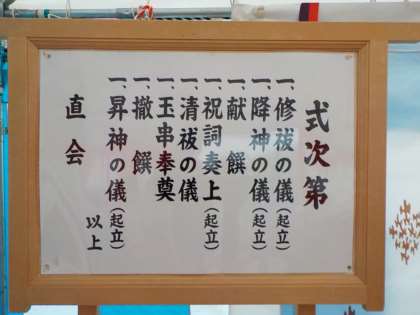 式次第
一、修祓の儀(起立)
一、降神の儀(起立)
一、献饌
一、祝詞奏上(起立)
一、清祓の儀
一、玉串奉奠
一、撤饌
一、昇神の儀(起立)
以上
直会